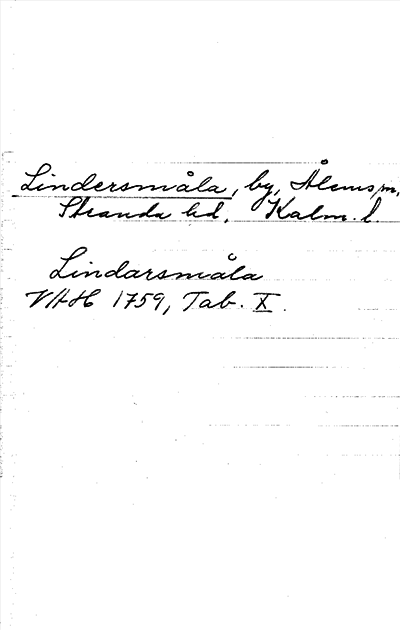 Lindersmåla, by, Ålems sn,
Stranda hd, Kalm. l.
Lindarsmåla
VAH 1759, Tab. X.